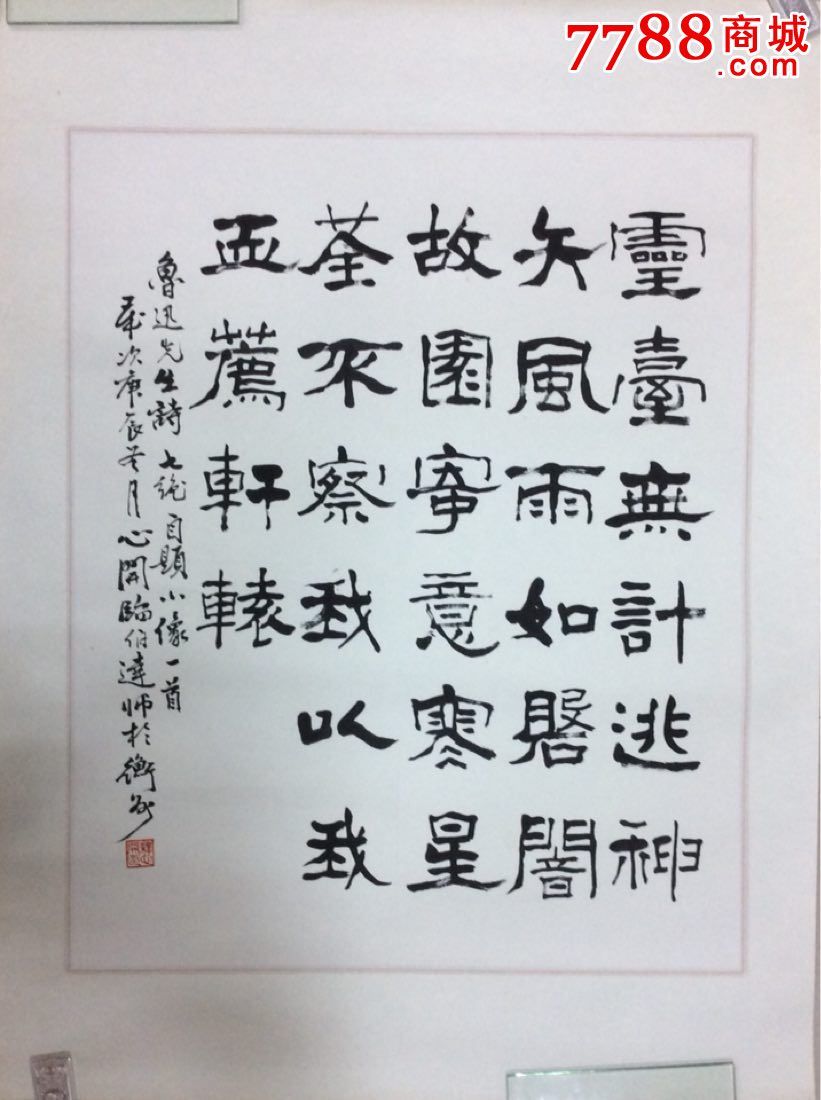 7788商城
.com
靈臺無計逃神
矢風雨如磐闇
故園寄意寒星
荃不察我以我
血薦軒轅
魯迅先生詩七絕自題小像一首
歲次庚辰冬月心開臨伯達師於衡